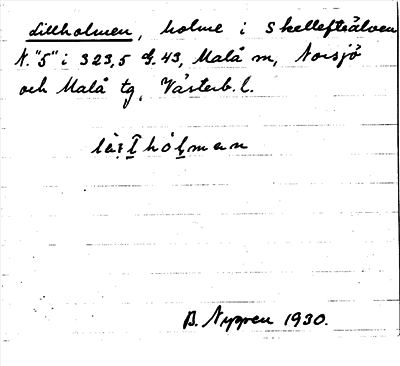 Lillholmen, holme i Skellefteälven
N. "5" i 323,5 G. 43, Malå sn, Norsjö
och Malå tg, Västerb. l.
B. Nygren 1930.